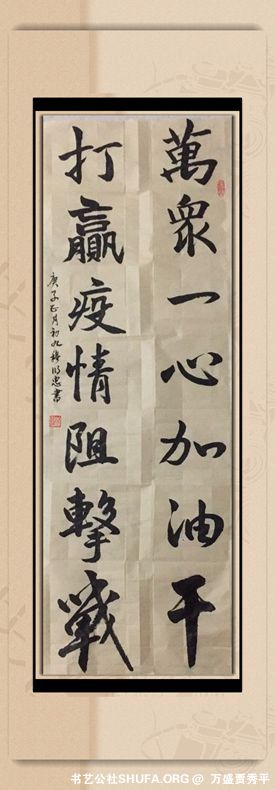 萬眾一心加油干
打贏疫情阻擊戰
庚子正月初九
書
书艺公社SHUFA.ORG @ 万盛贾秀平